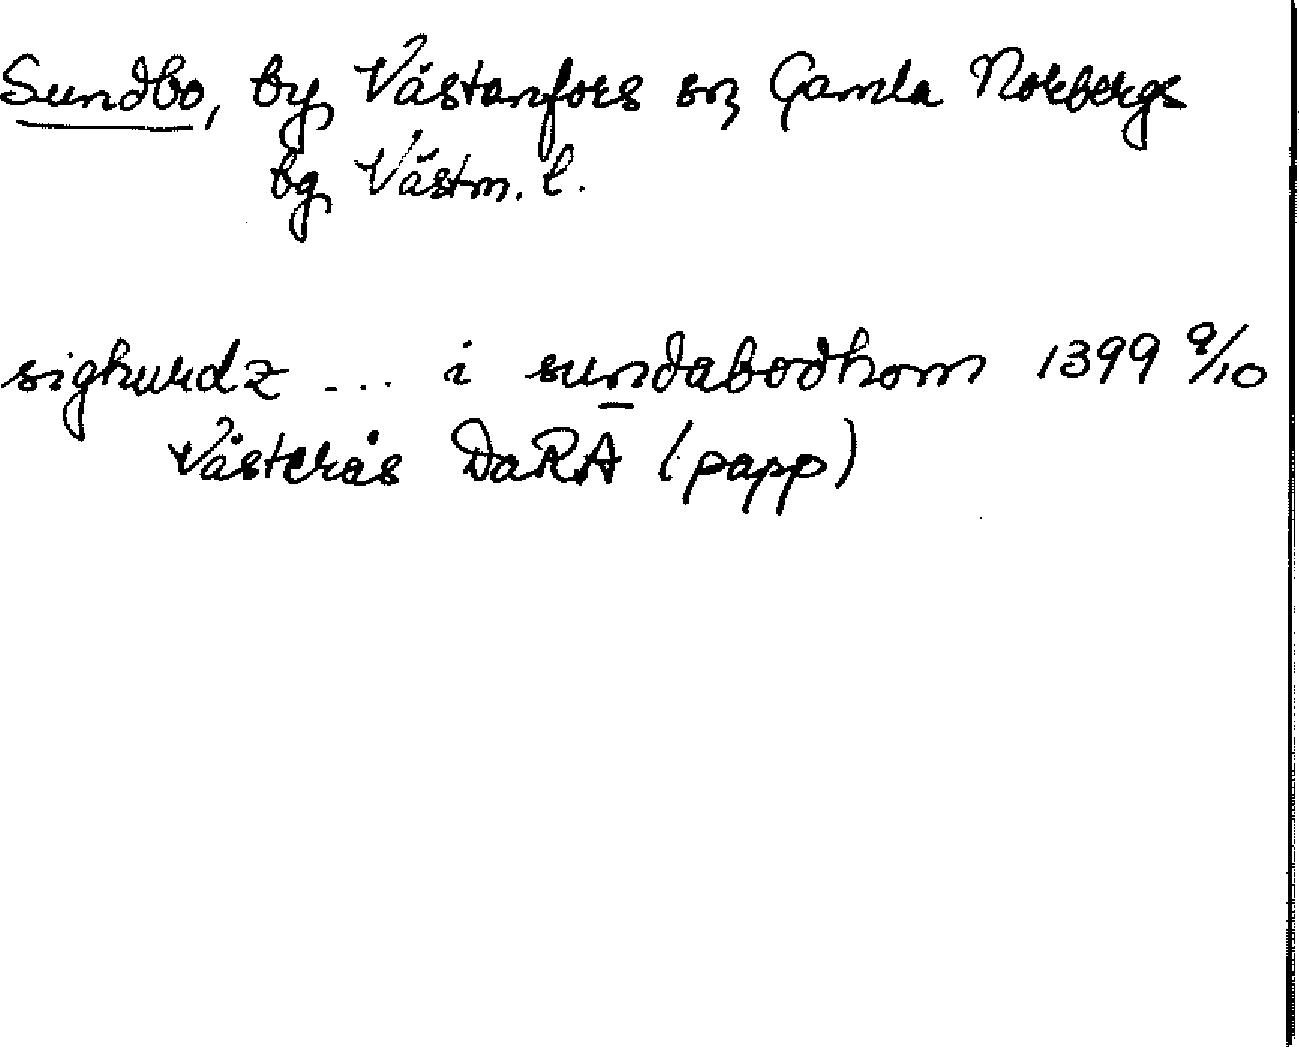 Sundbo, by Västanfors sn Gamla Norbergs
bg Västm. l.
sighurdz ... i sundabodhom 1399 9/10
Västerås DaRA (papp)